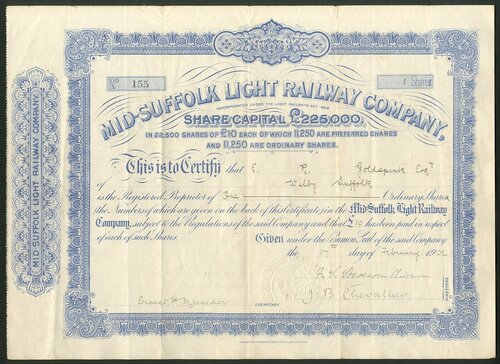 MID-SUFFOLK LIGHT RAILWAY COMPANY.
No 155
1 Shares
MID-SUFFOLK LIGHT RAILWAY COMPANY,
INCORPORATED UNDER THE LIGHT RAILWAYS ACT 1896.
SHARE CAPITAL £225,000,
IN 22,500 SHARES OF £10 EACH OF WHICH 11,250 ARE PREFERRED SHARES
AND 11,250 ARE ORDINARY SHARES.
This is to Certify that E. R. Goldspink Esqr
of Wilby Suffolk
is the Registered Proprietor of One Ordinary Shares,
the Numbers of which are given on the back of this Certificate in the Mid-Suffolk Light Railway
Company, subject to the Regulations of the said Company and that £10 has been paid in respect
of each of such Shares.
Given under the Common Seal of the said Company
the 17th day of February 1902
J. B. Chevallier
SECRETARY